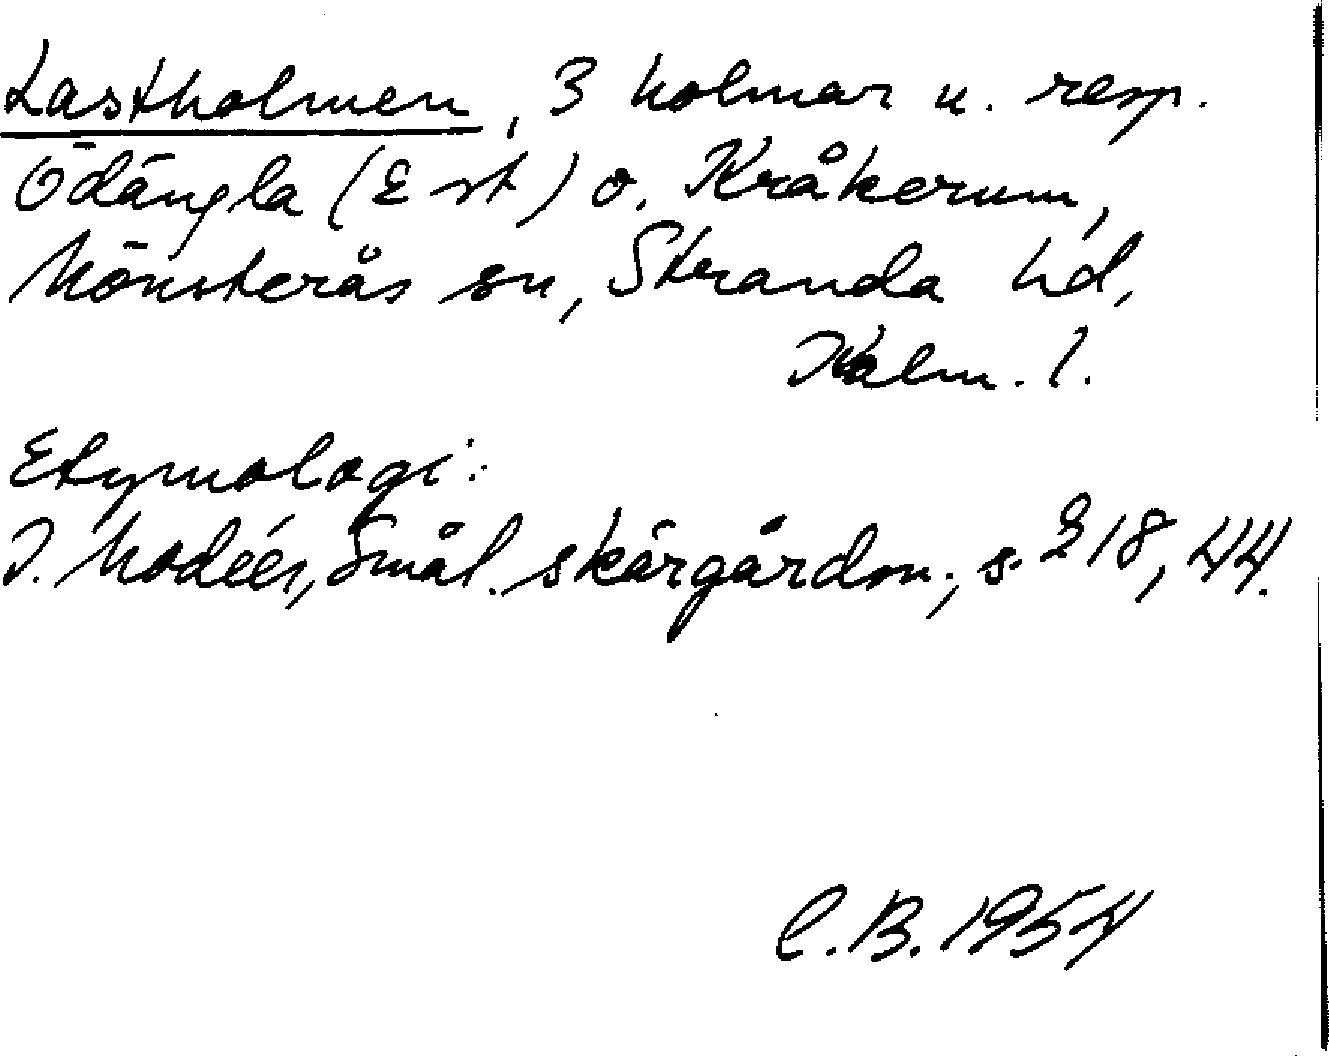 Lastholmen, 3 holmar u. resp.
Ödängla (2 st) o. Kråkerum,
Mönsterås sn, Stranda hd,
Kalm. l.
Etymologi:
I. Modéer, Smål. skärgårdsn., s. 218, 44.
C.B. 1954